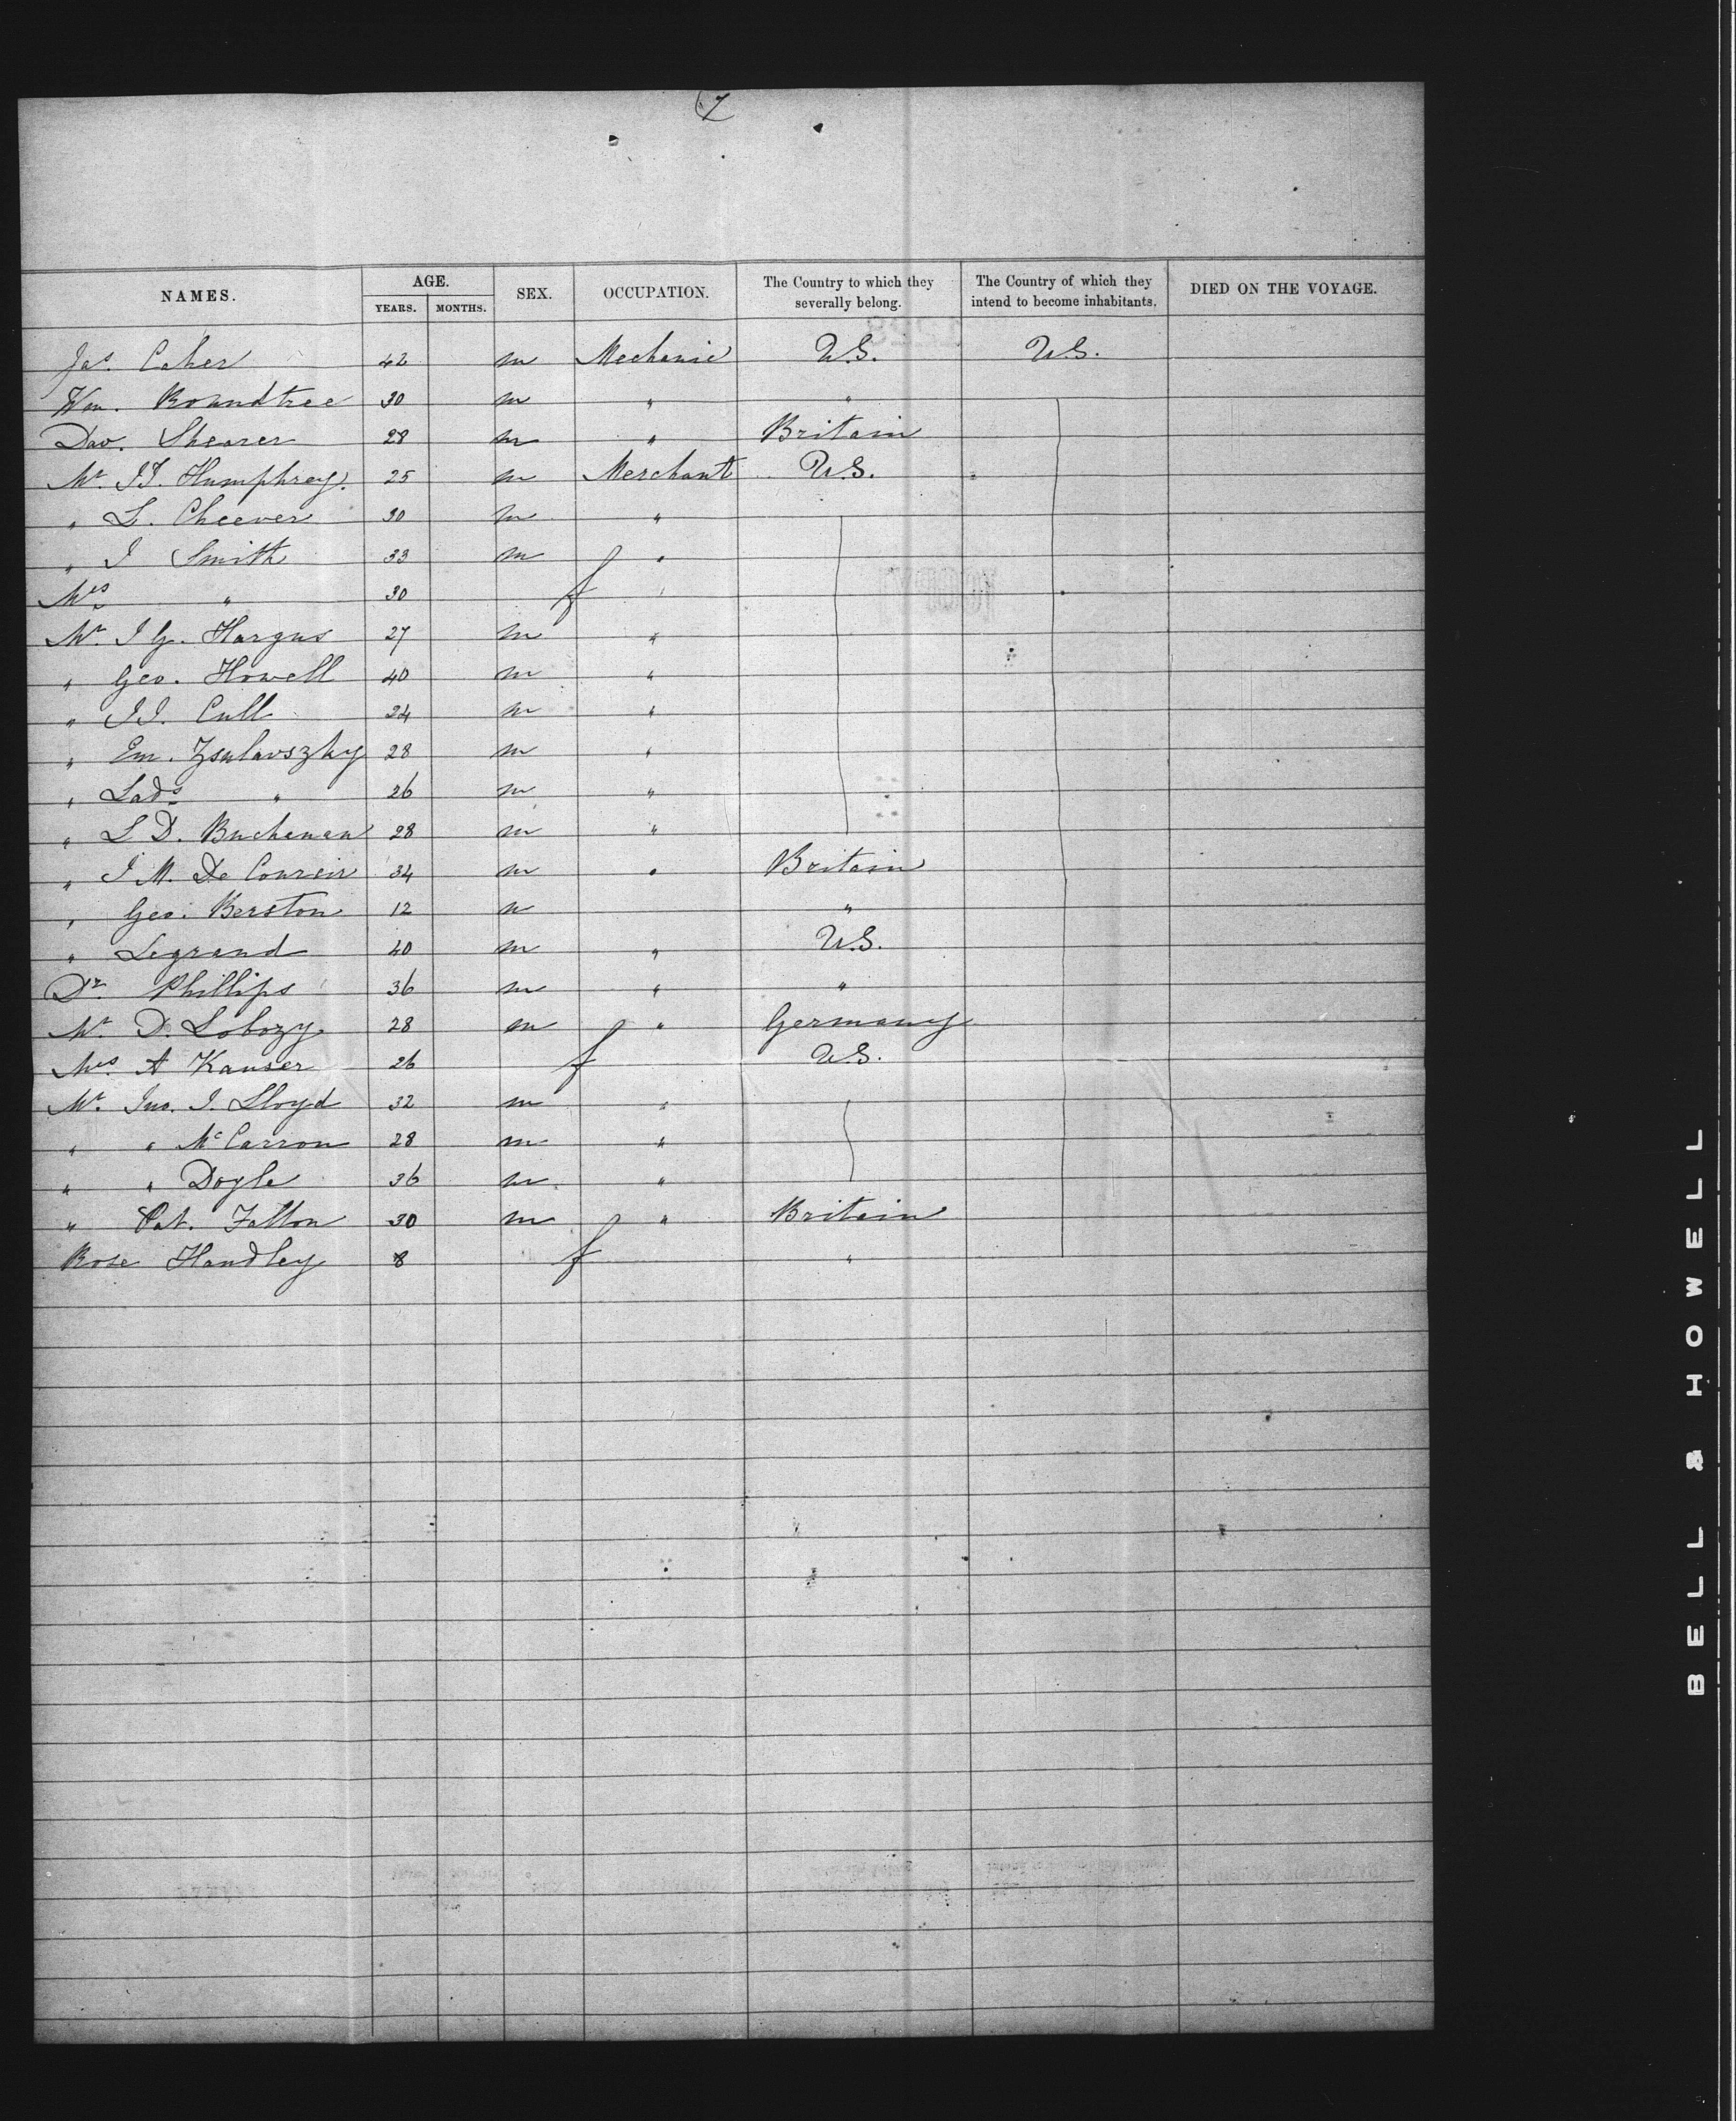 7
NAMES. AGE. YEARS. MONTHS. SEX. OCCUPATION. The Country to which they severally belong. The Country of which they intend to become inhabitants. DIED ON THE VOYAGE.
Jas. Caher 42 m Mechanic U.S. U.S.
Wm. Roundtree 30 m " "
Dav. Shearer 28 m " Britain
Mr. J.F. Humphrey. 25 m Merchant U.S.
" L. Cheever 30 m "
" J Smith 33 m "
Mrs " 30 f "
Mr. J G. Hargus 27 m "
" Geo. Howell 40 m "
" J J. Cull 24 m "
" Em. Zsulavszky 28 m "
" Lads. " 26 m "
" L D. Buchanan 28 m "
" J M. De Courcir 34 m " Britain
" Geo. Berston 12 m "
" Legrand 40 m " U.S.
Dr. Phillips 36 m " "
Mr. D. Lobozy. 28 m " Germany
Mrs. A Kauser 26 f U.S.
Mr. Jno. J. Lloyd 32 m "
" " McCarron 28 m "
" " Doyle 36 m "
" Pat. Fallon 30 m " Britain
Rose Handley 8 f "
BELL & HOWELL